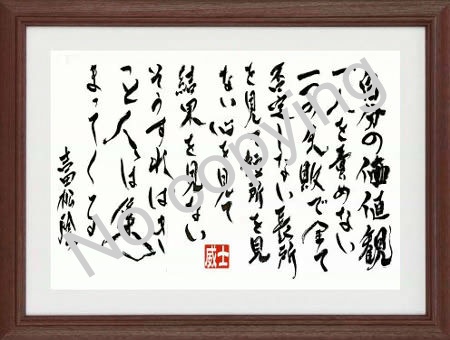 自分の価値観
で人を責めない
一つの失敗で全て
否定しない長所
を見て短所を見
ない心を見て
結果を見ない
そうすればきっ
と人は集
まってくる
吉田松陰
士威
No copying